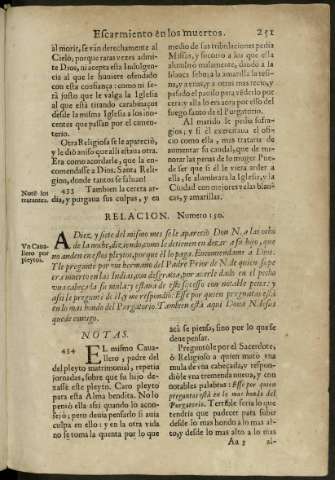 Escarmiento en los muertos. 251
al morir, se vàn derechamente al
Cielo, porque raras vezes admi-
te Dios, ni acepta esta Indulgen-
cia al que le huuiere ofendido
con esta confiança: como ni se-
rà justo que le valga la Iglesia
al que està tirando carabinaços
desde la misma Iglesia a los ino-
centes que passan por el cimen-
terio.
Otra Religiosa se le apareciò,
y le diò auiso que alli estaua otra.
Era como acordarle, que la en-
comendasse a Dios. Santa Reli-
gion, donde tantos se saluan!
Notē los
tratantes.
433 Tambien la cerera ar-
dia, y purgaua sus culpas, y en
medio de sus tribulaciones pedia
Missas, y socorro a los que ella
alumbrò malamente, dando a la
blanca sebo; a la amarilla
y passò el pauilo para vèderlo por
cera; y ella lo era aora por esso del
fuego santo de el Purgatorio.
Al marido le pedia sufra-
gios; y si èl exercitaua el ofi-
cio como ella, mas trataria de
aumentar su caudal, que de mo-
rar las penas de su muger. Pue-
de ser que si èl le viera arder a
ella, se alumbrara la Iglesia, y la
Ciudad con mejores velas blan-
cas, y amarillas.
RELACION. Numero 150.
Vn Caua-
llero por
pleytos.
A Diez y siete del mismo mes se le apareciò Don N. a las ocho
de la noche, diziendo, como le detienen en dezir a su hijo, que
no anden en essos pleytos, por que èl lo paga. Encomendome a
Tle preguntè por vn hermano del Padre Prior de N. de quien supe
era muerto en las Indias con desgracia, por averle dado en el pecho
vna cabeça la su mula: y estaua de este sucesso con notable pena: y
assi le preguntè de èl, y me respondiò: Esse por quien preguntas està
en lo mas hondo del Purgatorio. Tambien està aqui Dona N. Iesus
quede contigo.
NOTAS.
434 EL mismo Caua-
llero, padre del
del pleyto matrimonial, repetia
jornadas, sobre que su hijo de-
xasse este pleyto. Caro pleyto
para esta Alma bendita. No lo
pensò ella assi quando lo acon-
sejò; pero deuia pensarlo si auia
culpa en ello: y en la otra vida
no se toma la quenta por lo que
acà se piensa, sino por lo que se
deue pensar.
Preguntòle por el Sacerdote,
ò Religioso a quien matò vna
mula de vna cabeçada, y respon-
diòle vna tremenda nueua, y con
notables palabras: Esse por quien
preguntas està en lo mas hondo del
Purgatorio. Terrible seria lo que
tendria que padecer para subir
desde lo mas hondo a lo mas al-
to, y desde lo mas alto a lo mas
Aa 3 al-